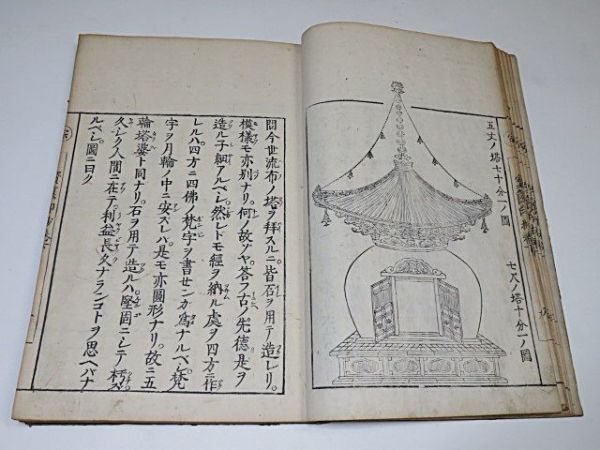 五尺ノ塔七十分一ノ圖
七尺ノ塔十分一ノ圖
問今世流布ノ塔ヲ拜スルニ皆石ヲ用テ造レリ。
模樣モ亦別ナリ。何ノ故ゾヤ。答フ古ノ先德是ヲ
造ル子細アルベシ。然レドモ經ヲ納ル處ヲ四方ニ作
レルハ四方ニ四佛ノ梵字ヲ書センガ爲ナルベシ。梵
字ヲ月輪ノ中ニ安スレバ。是モ亦圓形ナリ。故ニ五
輪塔婆ト同ナリ。石ヲ用テ造ルハ堅固ニシテ朽ズ
久シク人間ニ在テ利益長久ナランコトヲ思ヘバナ
ルベシ。圖ニ曰ク